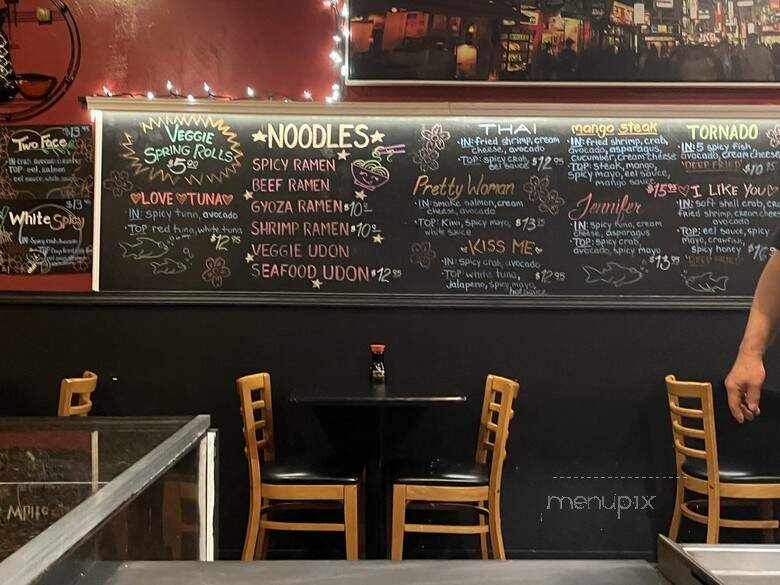 $13.95
Two Face
IN: crab, avocado
TOP: eel, salmon
eel sauce, white sauce
$13.95
White Spicy
IN: Spicy Crab, Avocado
VEGGIE
SPRING ROLLS
$5.00
♥LOVE♥TUNA♥
IN: spicy tuna, avocado
TOP: red tuna, white tuna
$12.95
★NOODLES★
SPICY RAMEN
BEEF RAMEN
GYOZA RAMEN $10.95
SHRIMP RAMEN $10.95
VEGGIE UDON
SEAFOOD UDON $12.95
THAI
IN: fried shrimp, cream
cheese, avocado
TOP: spicy crab,
eel sauce $12.95
Pretty Woman
IN: smoke salmon, cream
cheese, avocado
TOP: Kiwi, spicy mayo,
white sauce $13.25
KISS ME
IN: spicy crab, avocado
TOP: white tuna,
jalapeno, spicy mayo,
hot sauce
$12.95
mango steak
IN: fried shrimp, crab,
avocado, asparagus,
cucumber, cream cheese
TOP: steak, mango,
spicy mayo, eel sauce,
mango sauce
$15.95
Jennifer
IN: spicy tuna, cream
cheese, asparagus
TOP: spicy crab,
avocado, spicy mayo
$13.95
TORNADO
IN: 5 spicy fish,
avocado, cream cheese
"DEEP FRIED" $10.95
♥I LIKE YOU
IN: soft shell crab,
fried shrimp, cream
avocado
TOP: eel sauce, spicy
mayo, crawfish,
spicy honey
"DEEP FRIED"
menupix